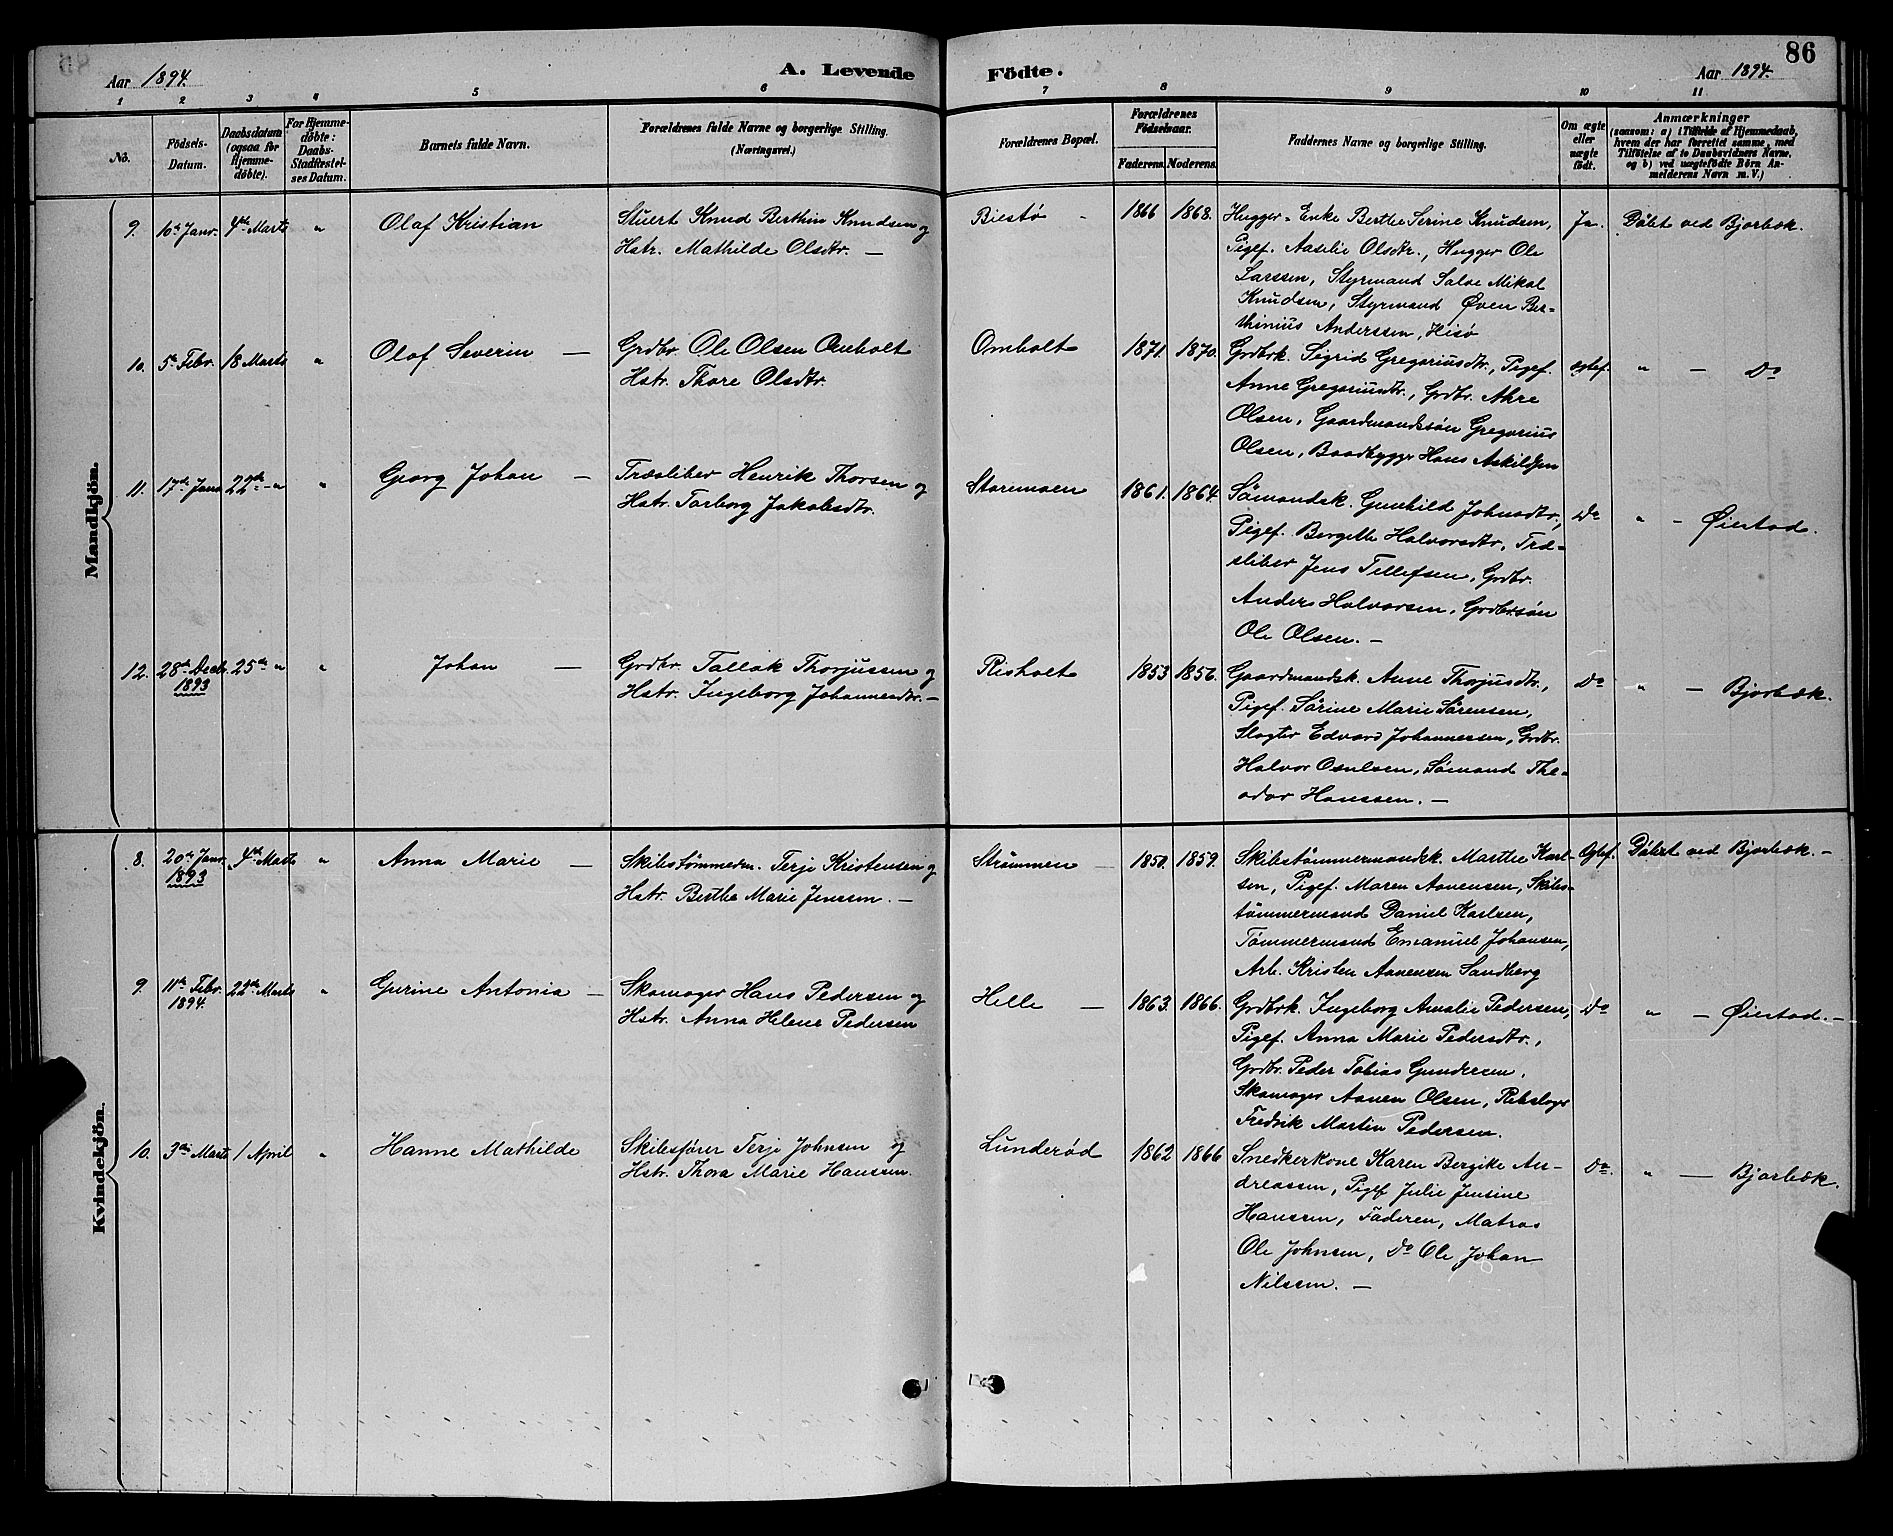 86
Aar 1894.
A. Levende Födte.
Aar 1894.
1 2 3 4 5 6 7 8 9 10 11
No.
Födsels-Datum.
Daabsdatum (ogsaa for Hjemme-döbte).
For Hjemme-döbte: Daabs-Stadfæstel-ses Datum.
Barnets fulde Navn.
Forældrenes fulde Navne og borgerlige Stilling. (Næringsvei.)
Forældrenes Bopæl.
Forældrenes Födselsaar.
Faderens. Moderens.
Faddernes Navne og borgerlige Stilling.
Om ægte eller uægte födt.
Anmærkninger
(saasom: a) i Tilfælde af Hjemmedaab,
hvem der har forrettet samme, med
Tilföielse af to Daabsvidners Navne,
og b) ved uægtefödte Börn An-
melderens Navn m. V.)
Mandkjön.
9. 10de Janr. 4de Marts " Olaf Kristian
Stuert Knud Berthin Knudsen og
Hstr. Mathilde Olsdtr. —
Biestø - 1866 1868.
Hugger-Enke Berthe Serine Knudsen,
Pigef. Aaselie Olsdtr., Hugger Ole
Larssen, Styrmand Salve Mikal
Knudsen, Styrmand Øven Ber-
thinius Anderssen, Hisø
Ja. Døbt ved Bjorbæk.
10. 5te Febr. 18 Marts " Olaf Severin —
Grdbr. Ole Olsen Omholt
Hstr. Thore Olsdtr.
Omholt 1871. 1870.
Grdbrk. Sigrid Gregoriusdtr., Pigef.
Anne Gregoriusdtr., Grdbr. Akre
Olsen, Gaardmandssøn Gregorius
Olsen, Baadbygger Hans Askildsen
Ogtef. " — Do
11. 17de Janr 22de - " " Georg Johan —
Træsliber Henrik Thorsen og
Hstr. Torborg Jakobsdtr.
Staremoen 1861. 1864.
Sømandsk. Gunhild Johnsdtr.,
Pigef. Bergitte Halvorsdtr., Træ-
sliber Jens Tellefsen, Grdbr.
Anders Halvorsen, Grdbrsøn
Ole Olsen. —
Do " - Øiestad.
12. 28de Decb. 1893 25de " " Johan —
Grdbr. Tallak Thorjussen og
Hstr. Ingeborg Johannesdtr. —
Risholt 1853 1856.
Gaardmandsk. Anne Thorjusdtr.,
Pigef. Sørine Marie Sørensen,
Slagter Edvard Johannessen, Grdbr.
Halvor Osulsen, Sømand The-
odor Hanssen. —
Do " — Bjorbæk.
Kvindekjön.
8. 20de Janr. 1893 4de Marts " Anna Marie —
Skibstømmerm. Terje Kristensen og
Hstr. Berthe Marie Jenssen. —
Strømmen — 1850. 1859.
Skibstømmermandsk. Marthe Karl-
sen, Pigef. Maren Aanensen, Skibs-
tømmermand Daniel Karlsen,
Tømmermand Emanuel Johansen,
Arb. Kristen Aanensen Sandberg
Ogtef. Døbt ved Bjorbæk. —
9. 11te Febr. 1894. 22de Marts " Gurine Antonia —
Skomager Hans Pedersen og
Hstr. Anna Helene Pedersen
Helle — 1863. 1866.
Grdbrk. Ingeborg Amalie Pedersen,
Pigef. Anna Marie Pedersdtr.,
Grdbr. Peder Tobias Gundersen,
Skomager Aanen Olsen, Rebslager
Fredrik Martin Pedersen.
Do " — Øiestad. —
10. 3die Marts 1 April " Hanne Mathilde
Skibsfører Terje Johnsen og
Hstr. Thora Marie Hansen.
Lunderød 1862 1866
Snedkerkone Karen Bergike An-
dreassen, Pigef. Julie Jensine
Hanssen, Faderen, Matros
Ole Johnsen, Do Ole Johan
Nilssen. —
Do. " — Bjorbæk.